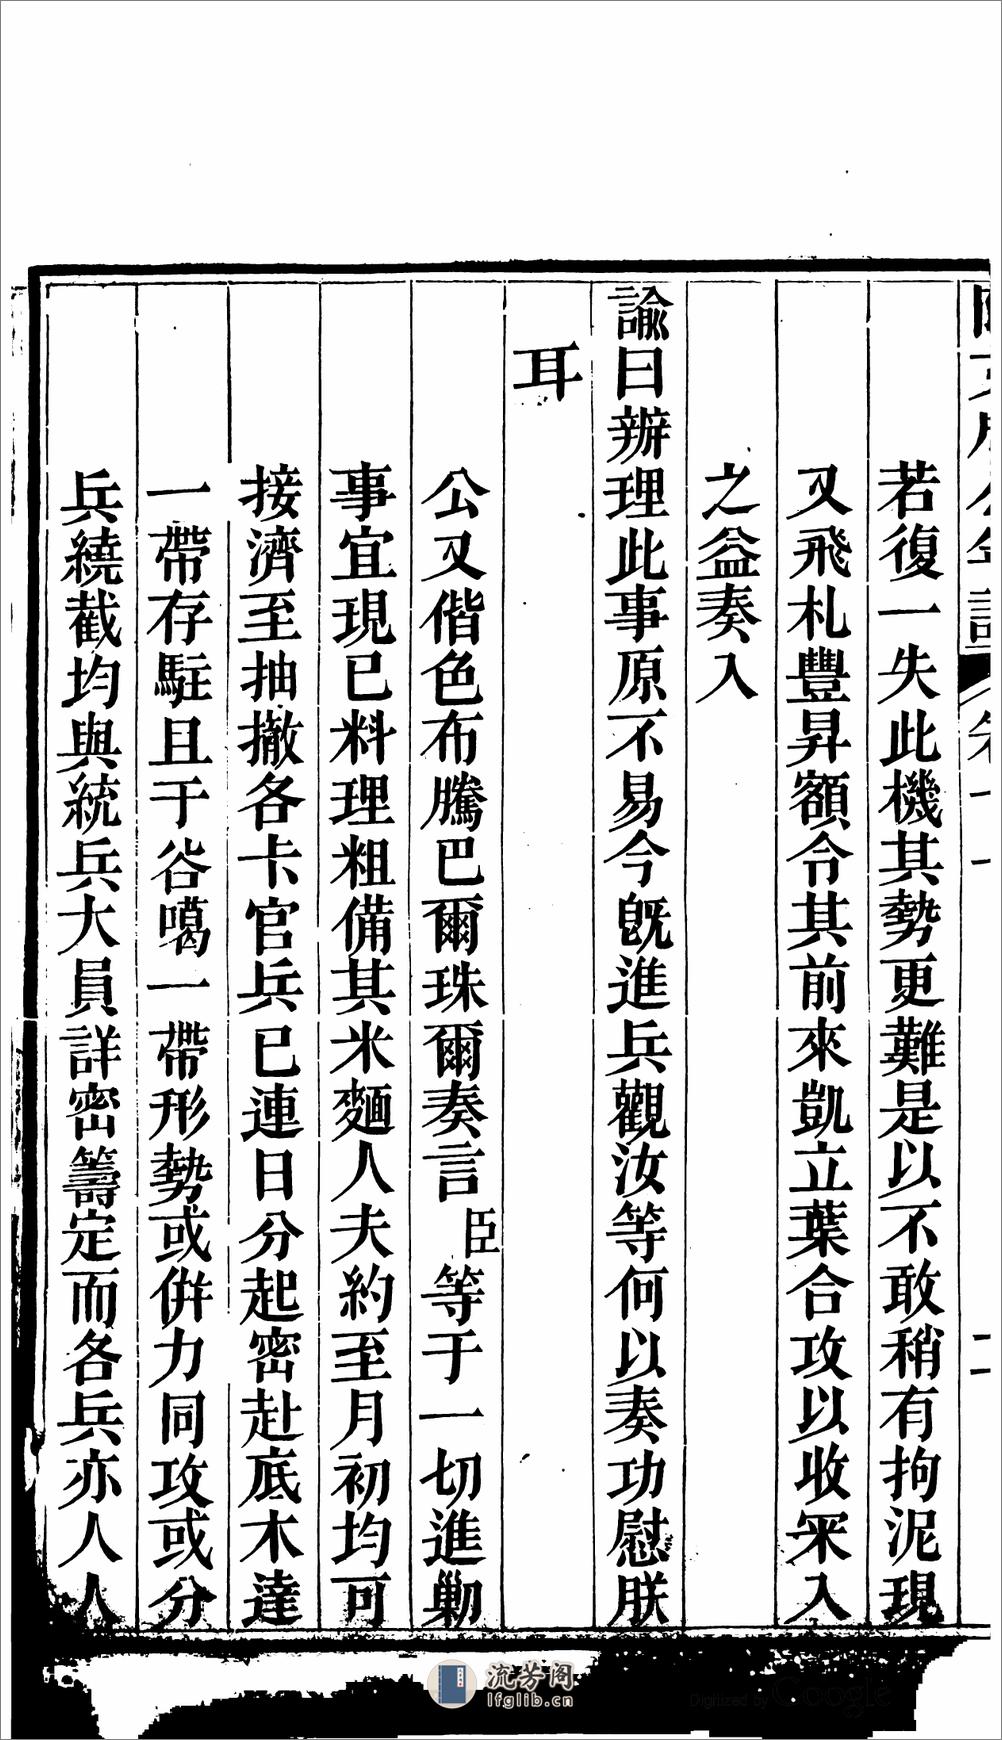 若復一失此機其勢更難是以不敢稍有拘泥現
又飛札豐昇額令其前來凱立葉合攻以收罙入
之益奏入
諭曰辦理此事原不易今旣進兵觀汝等何以奏功慰朕
耳
公又偕色布騰巴爾珠爾奏言臣等于一切進勦
事宜現已料理粗備其米麵人夫約至月初均可
接濟至抽撤各卡官兵已連日分起密赴底木達
一帶存駐且于谷噶一帶形勢或併力同攻或分
兵繞截均與統兵大員詳密籌定而各兵亦人人
流芳阁
lfglib.cn
Digitized by Google